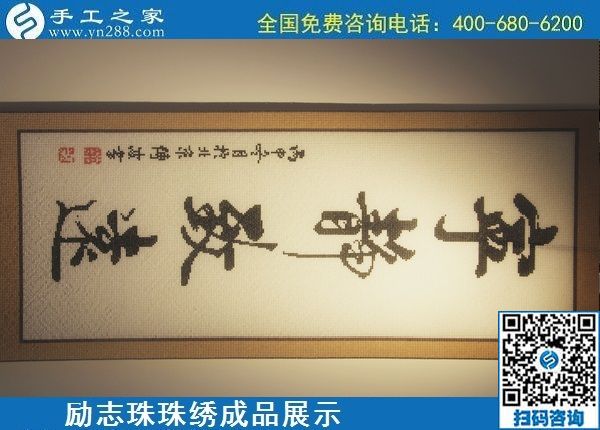 手工之家
www.yn288.com
全国免费咨询电话：400-680-6200
寧靜致遠
扫码咨询
励志珠珠绣成品展示